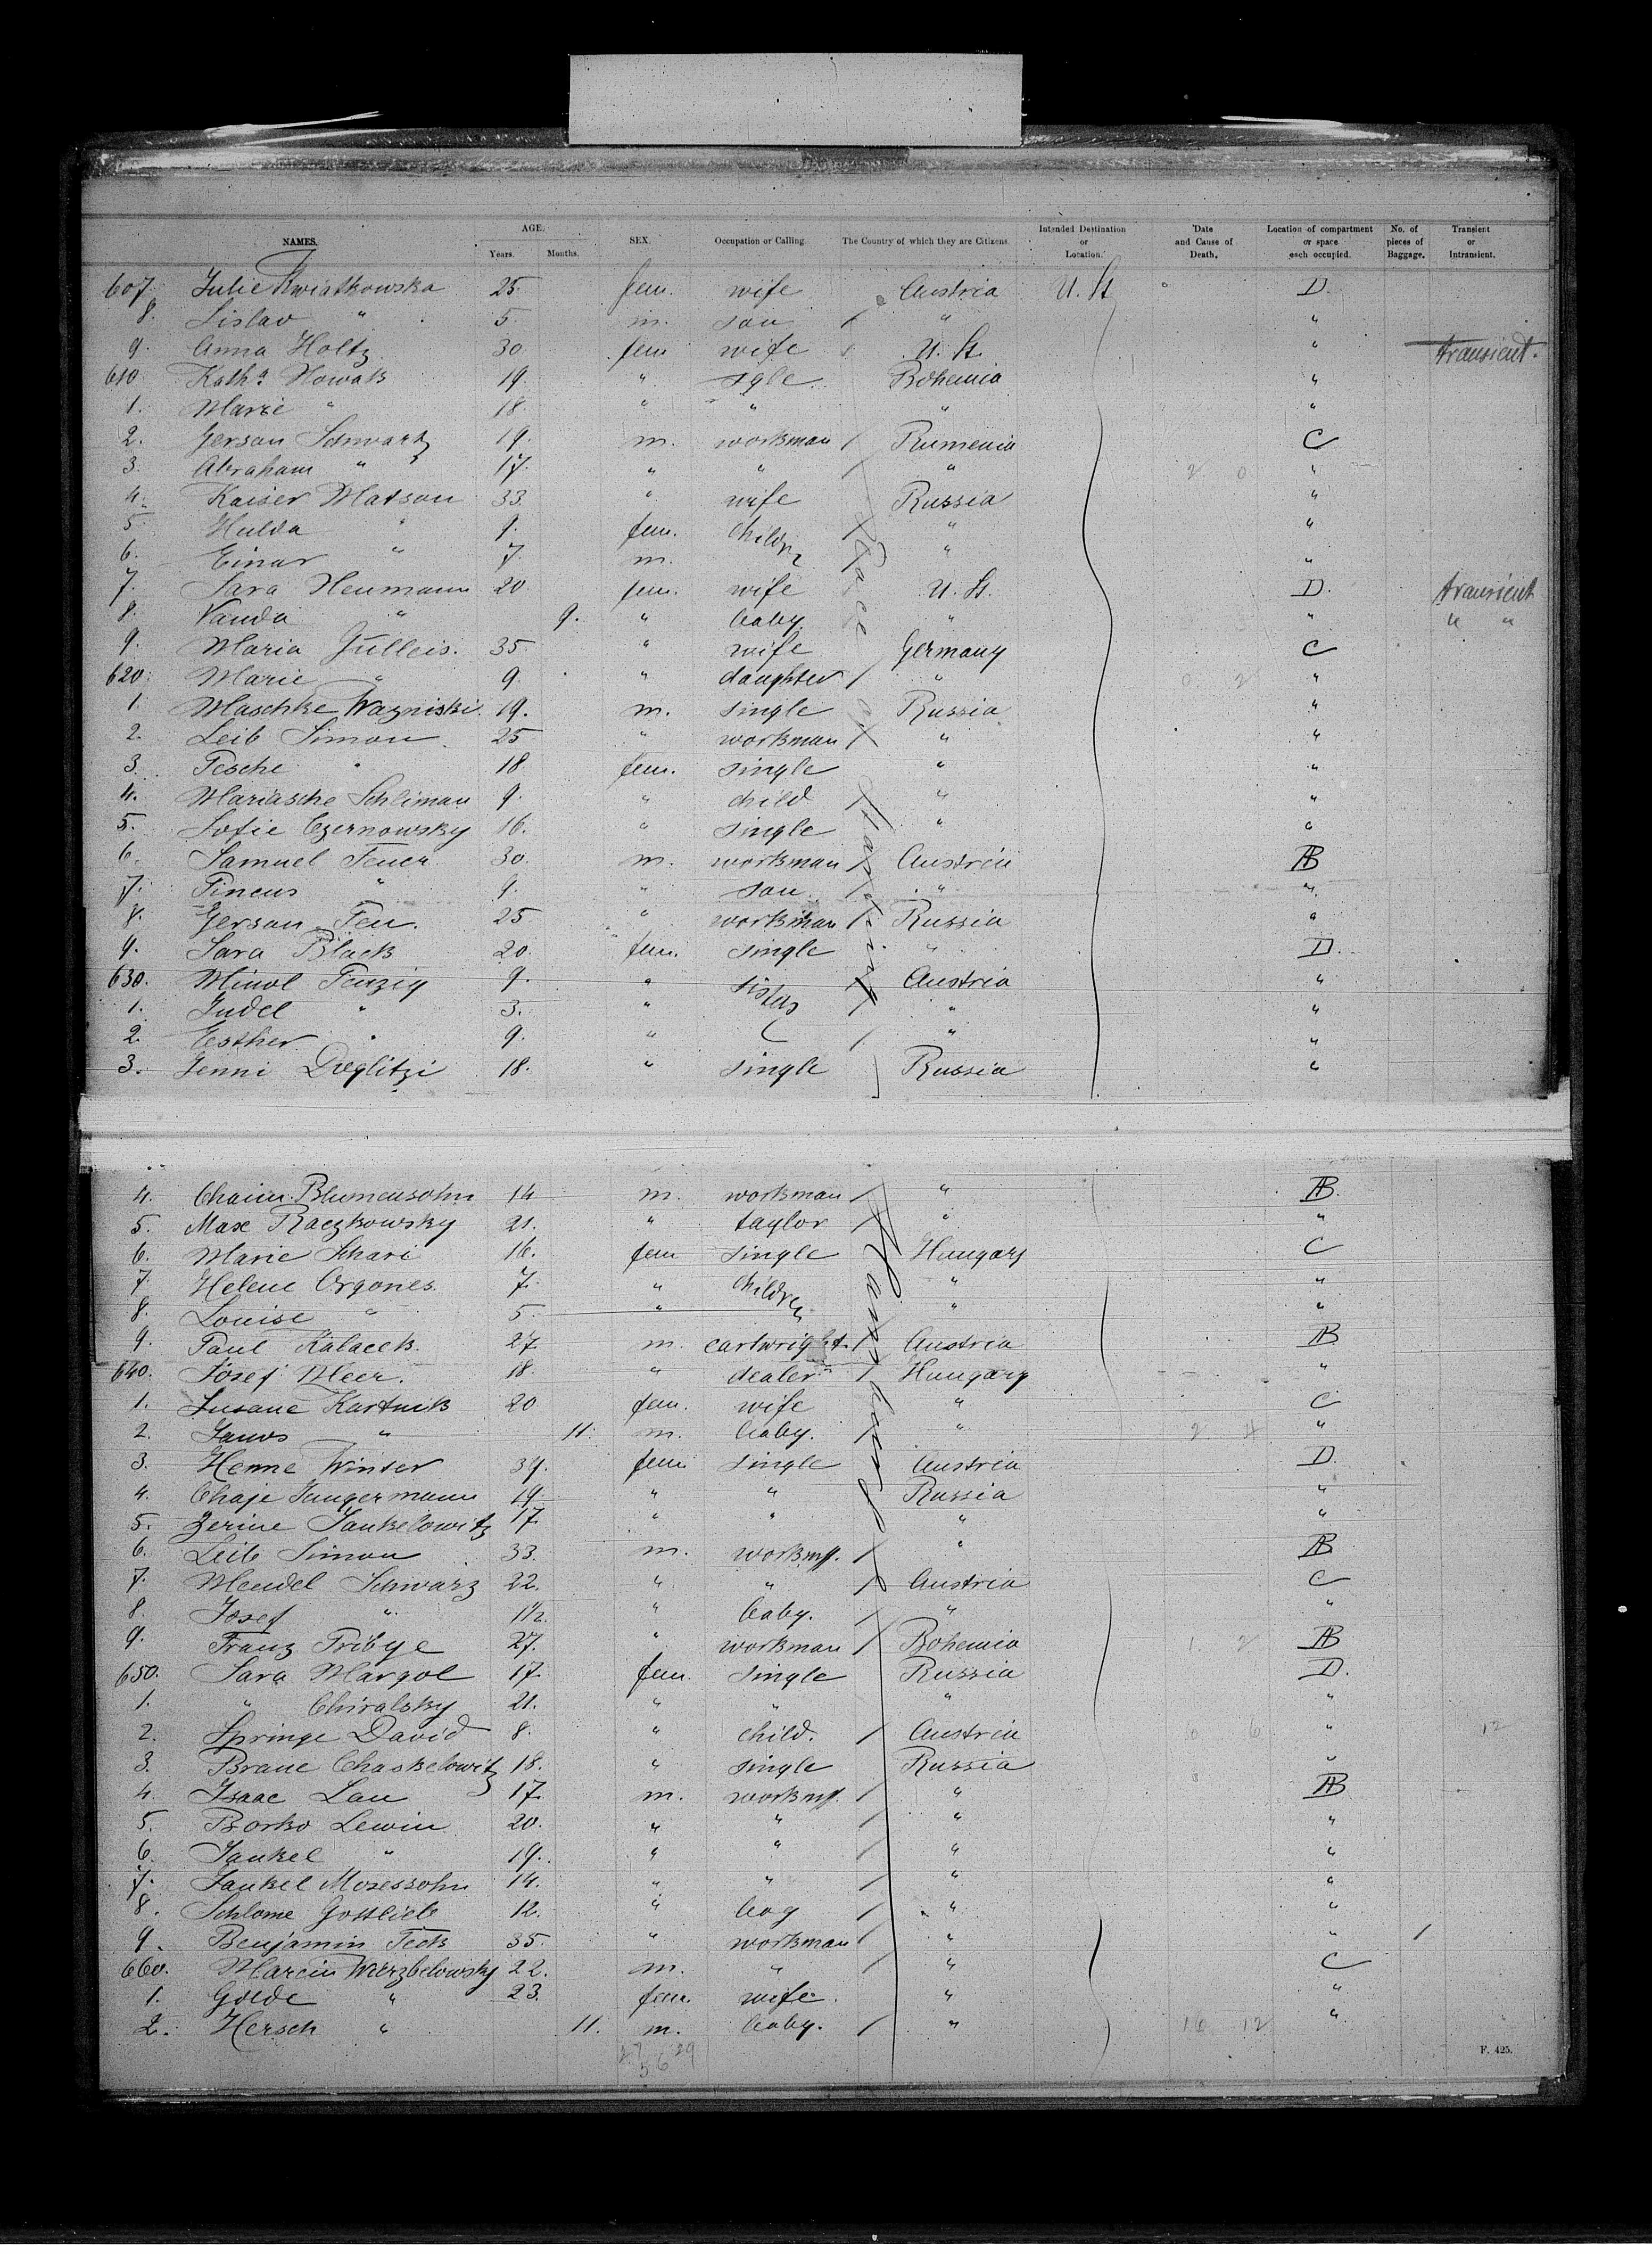 NAMES. AGE. Years. Months. SEX. Occupation or Calling. The Country of which they are Citizens. Intended Destination or Location. Date and Cause of Death. Location of compartment or space each occupied. No. of pieces of Baggage. Transient or Intransient.
607. Julie Kwiatkowska 25. fem. wife Austria U. St. D.
8. Sislav " 5. m. son / " "
9. Anna Holtz 30. fem wife U. St. " transient.
610 Kath^a Nowak 19. " sgle. Bohemia "
1. Marie " 18. " " " "
2. Gerson Schwartz 19. m. workman / Rumenia C
3. Abraham " 17. " " / " 2 0 "
4. Kaiser Matson 33. " wife Russia "
5. Hulda " 9. fem. children / " "
6. Einar " 7. m. " "
7. Sara Neumann 20. fem. wife U. St. D. transient
8. Vanda " 9. " baby. " " " "
9. Maria Gulleis. 35. " wife Germany C
620. Marie " 9. " daughter / " 0 2 "
1. Maschke Wazniski. 19. m. single Russia "
2. Leib Simon. 25 " workman / " "
3. Pesche " 18 fem. single " "
4. Mariasche Schliman 9. " child / " "
5. Sofie Czernowsky 16. " single " "
6. Samuel Feuer 30. m. workman / Austria AB
7. Pincus " 9. " son. / " "
8. Gerson Feu. 25 " workman / Russia "
9. Sara Black 20. fem. single " D.
630. Minol Fenzig 9. " sisters / Austria "
1. Judel " 3. " / " "
2. Esther " 9. " / " "
3. Jenni Dreglitzi 18. " single Russia "
Place of Starting
4. Chaim Blumensohn 14 m. workman / " AB.
5. Max Raczkowsky 21. " taylor / " "
6. Marie Schari 16. fem single Hungary C
7. Helene Orgones. 7. " children " "
8. Louise " 5. " " "
9. Paul Kalacek. 27 m. cartwright. / Austria AB
640. Josef Meer. 18. " dealer / Hungary "
1. Susane Kartnik 20 fem. wife " C
2. Janos " 11. m. baby. / " 2 4 "
3. Henne Winter 39. fem single Austria D.
4. Chaje Jungermann 19. " " Russia "
5. Zerine Jankelowitz 17. " " " "
6. Leib Simon 33. m. workm. / " AB
7. Mendel Schwarz 22. " " / Austria C
8. Josef " 1½. " baby. / " "
9. Franz Pribye 27. " workman / Bohemia 1. 2 AB
650. Sara Margol 17. fem. single Russia D.
1. " Chiralsky 21. " " " "
2. Springe David 8. " child. / Austria 6 6 " 12
3. Brane Chaskelowitz 18. " single Russia "
4. Isaac Lau 17. m. workm. / " AB
5. Borko Lewin 20. " " / " "
6. Jankel " 19. " " / " "
7. Jankel Mosessohn 14. " " / " "
8. Schlome Gottlieb 12. " boy / " "
9. Benjamin Teck 35. " workman / " " /
660. Marcin Wierzbelowsky 22. m. " / " C
1. Golde " 23. fem. wife. " "
2. Hersch " 11. m. baby. / " 16 12 "
Hamburg
27 29
56
F. 425.